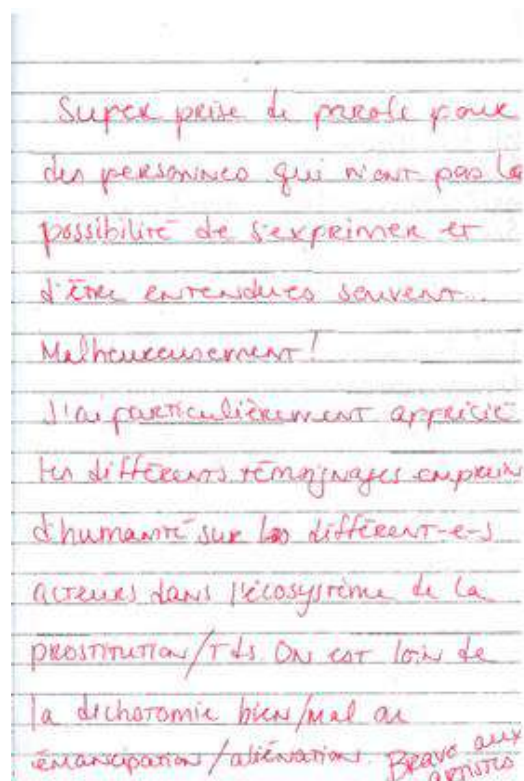 Super prise de parole pour
des personnes qui n'ont pas la
possibilité de s'exprimer et
d'être entendues souvent...
Malheureusement!
J'ai particulièrement apprécié
les différents témoignages emprein
d'humanité sur les différent-e-s
acteurs dans l'écosystème de la
prostitution/Tds. On est loin de
la dichotomie bien/mal ou
émancipation/aliénation. Bravo aux
artistes